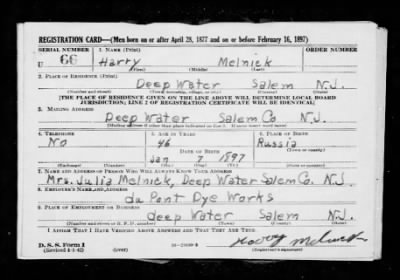 REGISTRATION CARD—(Men born on or after April 28, 1877 and on or before February 16, 1897)
SERIAL NUMBER 1. NAME (Print) ORDER NUMBER
U 66 Harry Melnick
(First) (Middle) (Last)
2. PLACE OF RESIDENCE (Print)
Deep Water Salem N.J.
(Number and street) (Town, township, village, or city) (County) (State)
[THE PLACE OF RESIDENCE GIVEN ON THE LINE ABOVE WILL DETERMINE LOCAL BOARD
JURISDICTION; LINE 2 OF REGISTRATION CERTIFICATE WILL BE IDENTICAL]
3. MAILING ADDRESS
Deep Water Salem Co N.J.
[Mailing address if other than place indicated on line 2. If same insert word same]
4. TELEPHONE 5. AGE IN YEARS 6. PLACE OF BIRTH
No 46 Russia
DATE OF BIRTH (Town or county)
Jan 7 1897
(Exchange) (Number) (Mo.) (Day) (Yr.) (State or country)
7. NAME AND ADDRESS OF PERSON WHO WILL ALWAYS KNOW YOUR ADDRESS
Mrs. Julia Melnick, Deep Water Salem Co. N.J.
8. EMPLOYER'S NAME AND ADDRESS
du Pont Dye Works
9. PLACE OF EMPLOYMENT OR BUSINESS
deep Water Salem N.J.
(Number and street or R. F. D. number) (Town) (County) (State)
I AFFIRM THAT I HAVE VERIFIED ABOVE ANSWERS AND THAT THEY ARE TRUE.
D. S. S. Form 1
(Revised 4-1-42) Harry Melnick